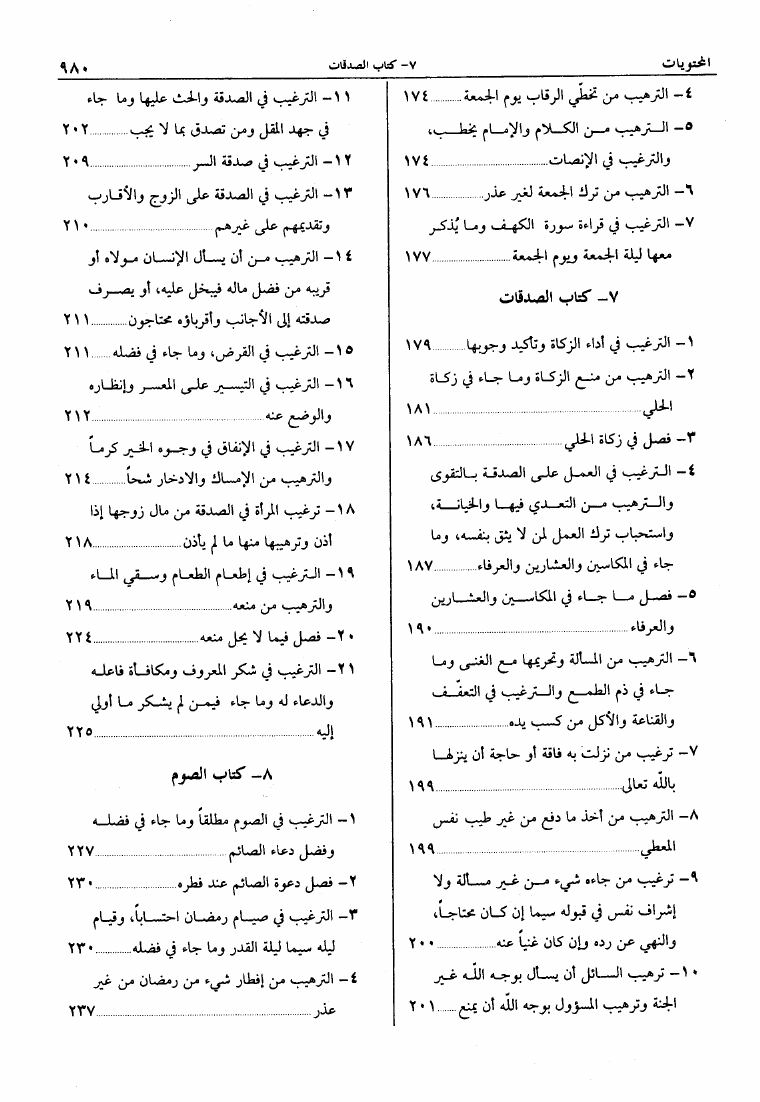 المحتويات
٧- كتاب الصدقات
٩٨٠
٤- الترهيب من تخطّي الرقاب يوم الجمعة..........١٧٤
٥- الـترهيب مـن الكـلام والإمـام يخطـب،
والترغيب في الإنصات..........١٧٤
٦- الترهيب من ترك الجمعة لغير عذر..........١٧٦
٧- الترغيب في قراءة سورة الكهـف ومـا يُذكـر
معها ليلة الجمعة ويوم الجمعة..........١٧٧
٧- كتاب الصدقات
١- الترغيب في أداء الزكاة وتأكيد وجوبها..........١٧٩
٢- الترهيب من منـع الزكـاة ومـا جـاء في زكـاة
الحلي..........١٨١
٣- فصل في زكاة الحلي..........١٨٦
٤- الـترغيب في العمـل علـى الصدقـة بـالتقوى
والـترهيب مـن التعـدي فيهـا والخيانـة،
واستحباب ترك العمل لمن لا يثق بنفسه، وما
جاء في المكاسين والعشارين والعرفاء..........١٨٧
٥- فصـل مـا جـاء في المكاسـين والعشـارين
والعرفاء..........١٩٠
٦- الترهيب من المسألة وتحريمها مـع الغنـى ومـا
جـاء في ذم الطمـع والـترغيب في التعفّـف
والقناعة والأكل من كسب يده..........١٩١
٧- ترغيب من نزلت به فاقة أو حاجة أن ينزلهـا
بالله تعالى..........١٩٩
٨- الترهيب من أخذ ما دفع من غير طيب نفس
المعطي..........١٩٩
٩- ترغيب من جاءه شيء مـن غـير مسـألة ولا
إشراف نفس في قبوله سيما إن كـان محتاجـاً،
والنهي عن رده وإن كان غنياً عنه..........٢٠٠
١٠- ترهيب السـائل أن يسـأل بوجـه اللّـه غـير
الجنة وترهيب المسؤول بوجه الله أن يمنع......٢٠١
١١- الترغيب في الصدقة والحث عليها وما جاء
في جهد المقل ومن تصدق بما لا يجب..........٢٠٢
١٢- الترغيب في صدقة السر..........٢٠٩
١٣- الترغيب في الصدقة على الزوج والأقـارب
وتقديمهم على غيرهم..........٢١٠
١٤- الترهيب مـن أن يسـأل الإنسـان مـولاه أو
قريبه من فضل ماله فيبخل عليه، أو يصـرف
صدقته إلى الأجانب وأقرباؤه محتاجون..........٢١١
١٥- الترغيب في القرض، وما جاء في فضله......٢١١
١٦- الترغيب في التيسـير علـى المعسـر وإنظـاره
والوضع عنه..........٢١٢
١٧- الترغيب في الإنفاق في وجـوه الخـير كرمـاً
والترهيب من الإمساك والادخار شحاً..........٢١٤
١٨- ترغيب المرأة في الصدقة من مال زوجها إذا
أذن وترهيبها منها ما لم يأذن..........٢١٨
١٩- الـترغيب في إطعـام الطعـام وسـقي المـاء
والترهيب من منعه..........٢١٩
٢٠- فصل فيما لا يحل منعه..........٢٢٤
٢١- الترغيب في شكر المعروف ومكافـأة فاعلـه
والدعاء له وما جاء فيمـن لم يشـكر مـا أولي
إليه..........٢٢٥
٨- كتاب الصوم
١- الترغيب في الصوم مطلقاً وما جاء في فضلـه
وفضل دعاء الصائم..........٢٢٧
٢- فصل دعوة الصائم عند فطره..........٢٣٠
٣- الترغيب في صيـام رمضـان احتسـاباً، وقيـام
ليله سيما ليلة القدر وما جاء في فضله..........٢٣٠
٤- الترهيب من إفطار شيء من رمضان من غير
عذر..........٢٣٧